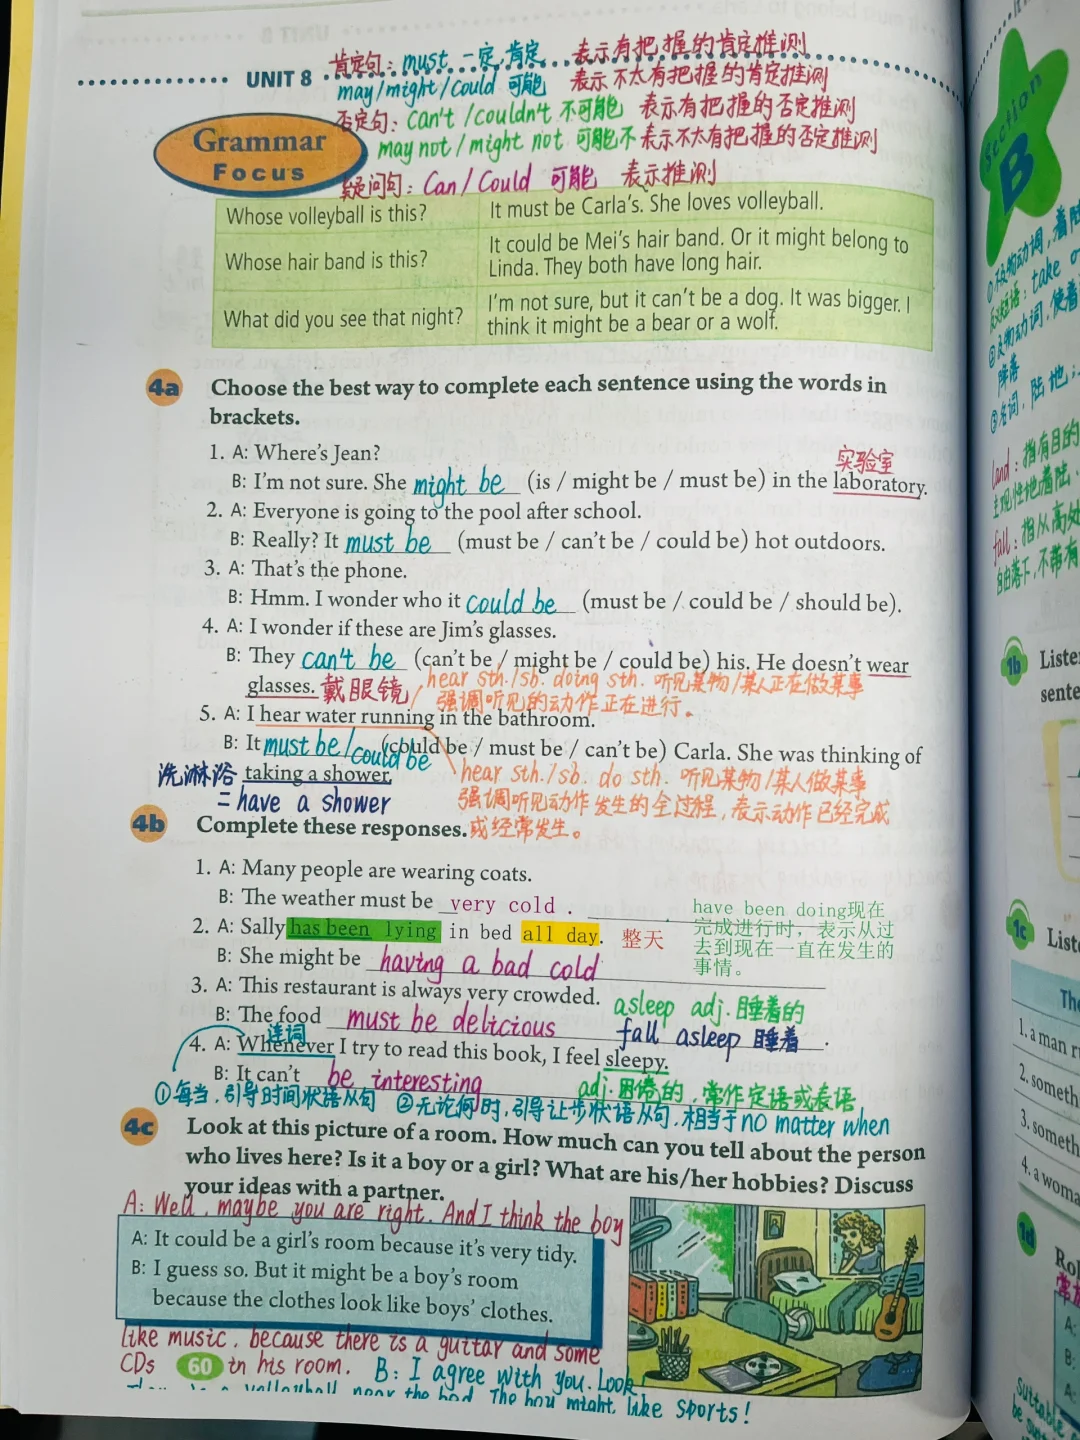 肯定句：must 一定,肯定 表示有把握的肯定推测
UNIT 8
may/might/could 可能 表示不太有把握的肯定推测
否定句：can't/couldn't 不可能 表示有把握的否定推测
may not/might not 可能不 表示不太有把握的否定推测
疑问句：Can/Could 可能 表示推测
Grammar
Focus
Whose volleyball is this? It must be Carla's. She loves volleyball.
Whose hair band is this? It could be Mei's hair band. Or it might belong to
Linda. They both have long hair.
What did you see that night? I'm not sure, but it can't be a dog. It was bigger. I
think it might be a bear or a wolf.
4a Choose the best way to complete each sentence using the words in
brackets.
1. A: Where's Jean?
实验室
B: I'm not sure. She might be (is / might be / must be) in the laboratory.
2. A: Everyone is going to the pool after school.
B: Really? It must be (must be / can't be / could be) hot outdoors.
3. A: That's the phone.
B: Hmm. I wonder who it could be (must be / could be / should be).
4. A: I wonder if these are Jim's glasses.
B: They can't be (can't be / might be / could be) his. He doesn't wear
glasses. 戴眼镜
hear sth./sb. doing sth. 听见某物/某人正在做某事
强调听见的动作正在进行。
5. A: I hear water running in the bathroom.
B: It must be/could be (could be / must be / can't be) Carla. She was thinking of
洗淋浴 taking a shower.
= have a shower
hear sth./sb. do sth. 听见某物/某人做某事
强调听见动作发生的全过程，表示动作已经完成
或经常发生。
4b Complete these responses.
1. A: Many people are wearing coats.
B: The weather must be very cold .
have been doing现在
完成进行时，表示从过
去到现在一直在发生的
事情。
2. A: Sally has been lying in bed all day. 整天
B: She might be having a bad cold
3. A: This restaurant is always very crowded.
asleep adj. 睡着的
B: The food must be delicious .
fall asleep 睡着
连词
4. A: Whenever I try to read this book, I feel sleepy.
B: It can't be interesting
adj. 困倦的，常作定语或表语
①每当，引导时间状语从句 ②无论何时，引导让步状语从句，相当于no matter when
4c Look at this picture of a room. How much can you tell about the person
who lives here? Is it a boy or a girl? What are his/her hobbies? Discuss
your ideas with a partner.
A: Well, maybe you are right. And I think the boy
A: It could be a girl's room because it's very tidy.
B: I guess so. But it might be a boy's room
because the clothes look like boys' clothes.
like music, because there is a guitar and some
CDs in his room. B: I agree with you. Look!
60
is a volleyball near the bed. The boy might like sports!
Section
B
①及物动词，着陆
反义短语：take o
②及物动词，使着
降落
③名词，陆地；
land：指有目的
主观性地着陆
fall：指从高处
自由落下，不带有
1b Liste
sente
1c Liste
The
1. a man r
2. someth
3. someth
4. a woma
1d Rol
A:
B:
A:
B:
A: